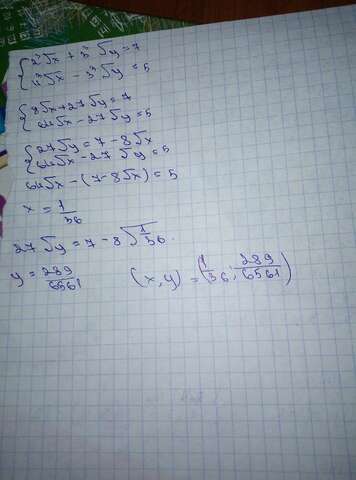 {2³√x + 3³√y = 7
4³√x - 3³√y = 5
{8√x + 27√y = 7
64√x - 27√y = 5
{27√y = 7 - 8√x
64√x - 27√y = 5
64√x - (7 - 8√x) = 5
x = 1/36
27√y = 7 - 8√1/36.
y = 289/6561
(x, y) = (1/36; 289/6561)